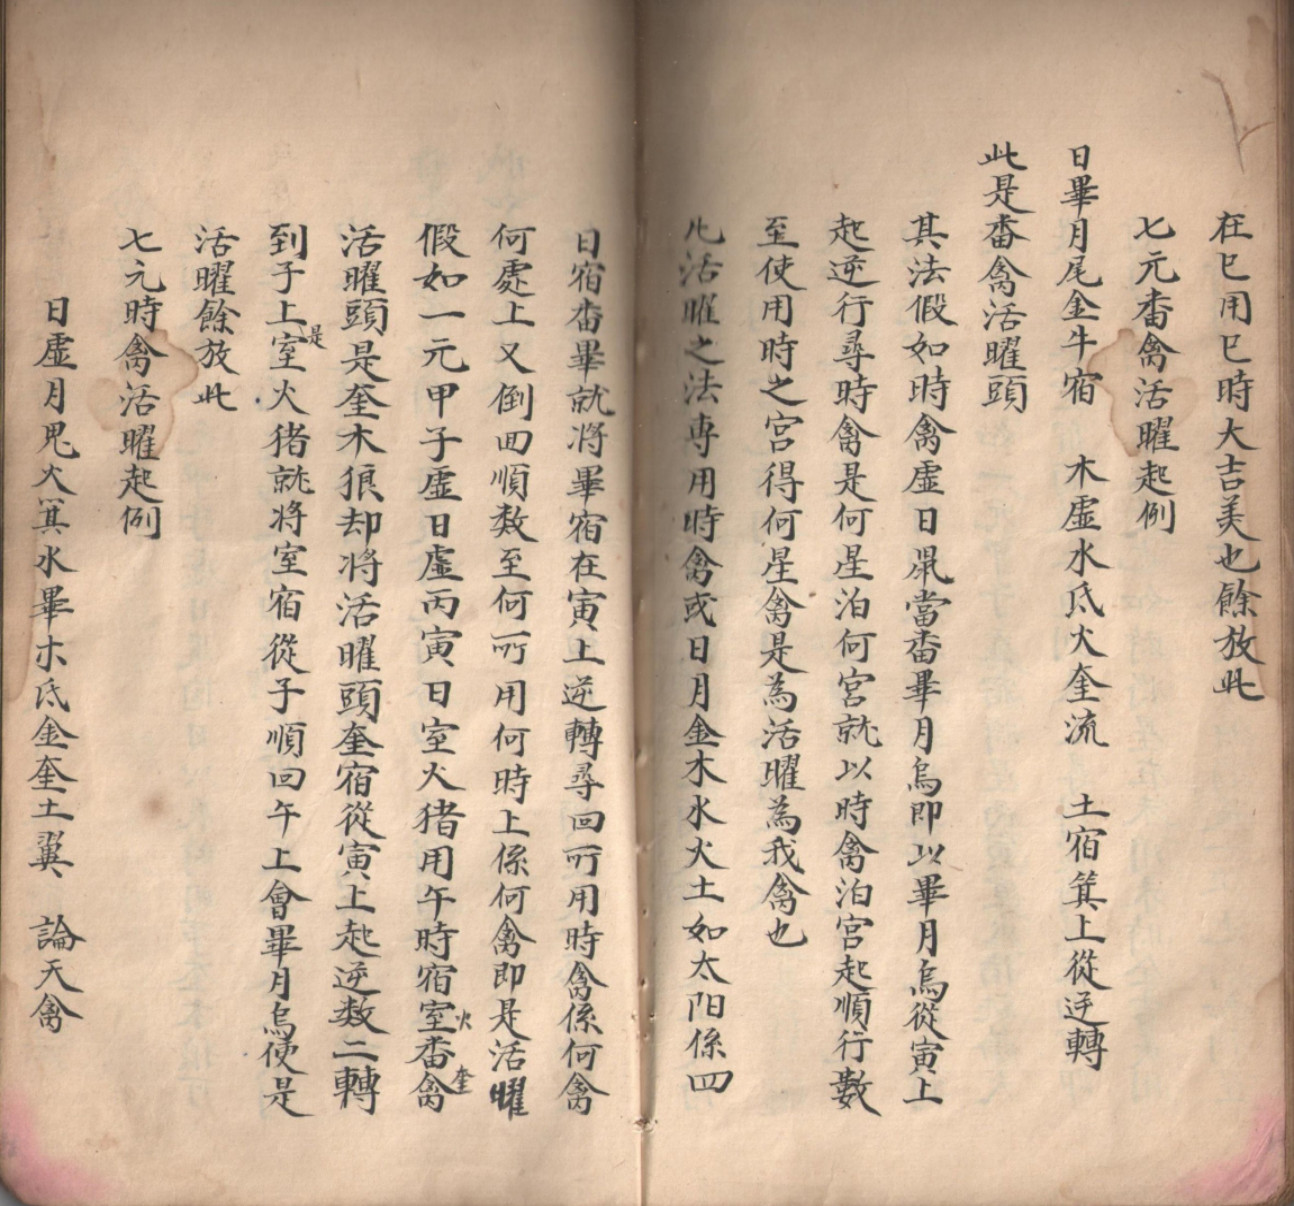 在巳用巳時大吉美也餘放此
七元畨禽活曜起例
日畢月尾金牛宿　木虛水氐火奎流　土宿箕上從逆轉
此是畨禽活曜頭
其法假如時禽虛日鼠當畨畢月烏即以畢月烏從寅上
起逆行尋時禽是何星泊何宮就以時禽泊宮起順行數
至使用時之宮得何星禽是為活曜為我禽也
凡活曜之法專用時禽或日月金木水火土如太阳係四
日宿畨畢就將畢宿在寅上逆轉尋回所用時禽係何禽
何處上又倒回順数至何所用何時上係何禽即是活曜
假如一元甲子虛日虛丙寅日室火猪用午時宿室火畨禽奎
活曜頭是奎木狼却将活曜頭奎宿從寅上起逆数二轉
到子上是室火猪就将室宿從子順回午上會畢月烏便是
活曜餘放此
七元時禽活曜起例
日虛月鬼火箕水畢木氐金奎土翼　論天禽